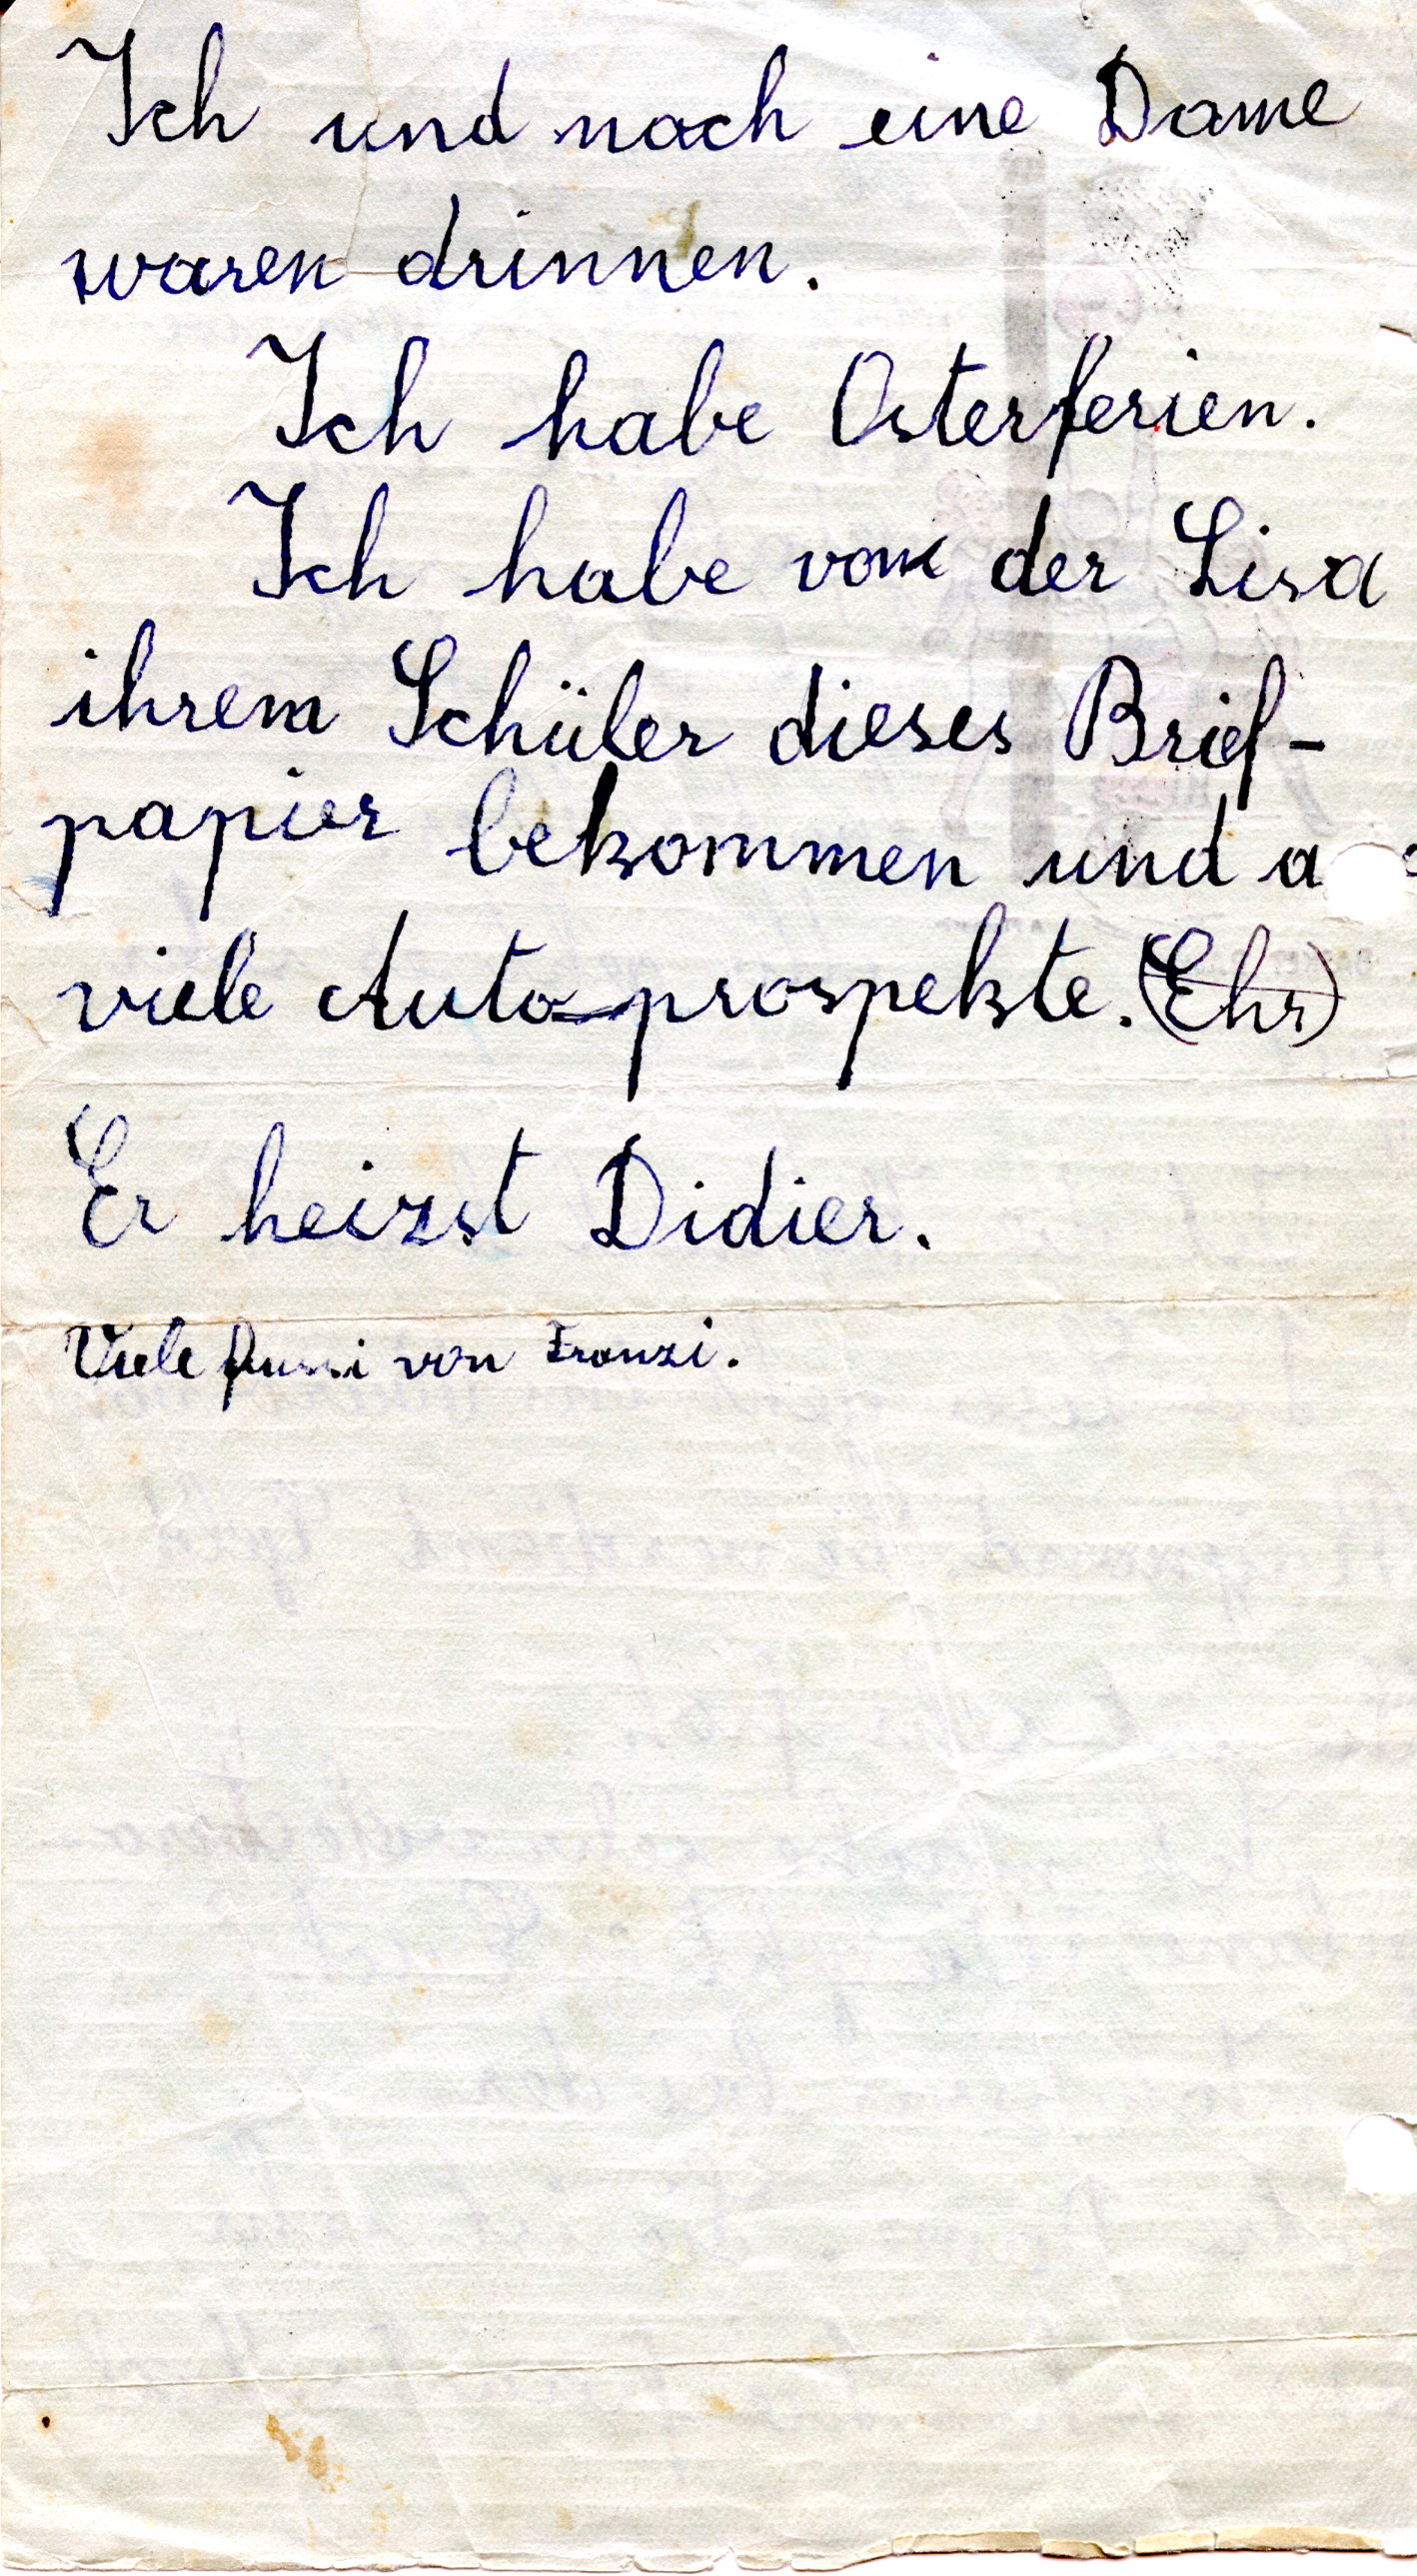 Ich und noch eine Dame
waren drinnen.
Ich habe Osterferien.
Ich habe von der Lisa
ihrem Schüler dieses Brief-
papier bekommen und
viele Autoprospekte. (Ehr)
Er heizst Didier.
Viele Pussi von Franzi.